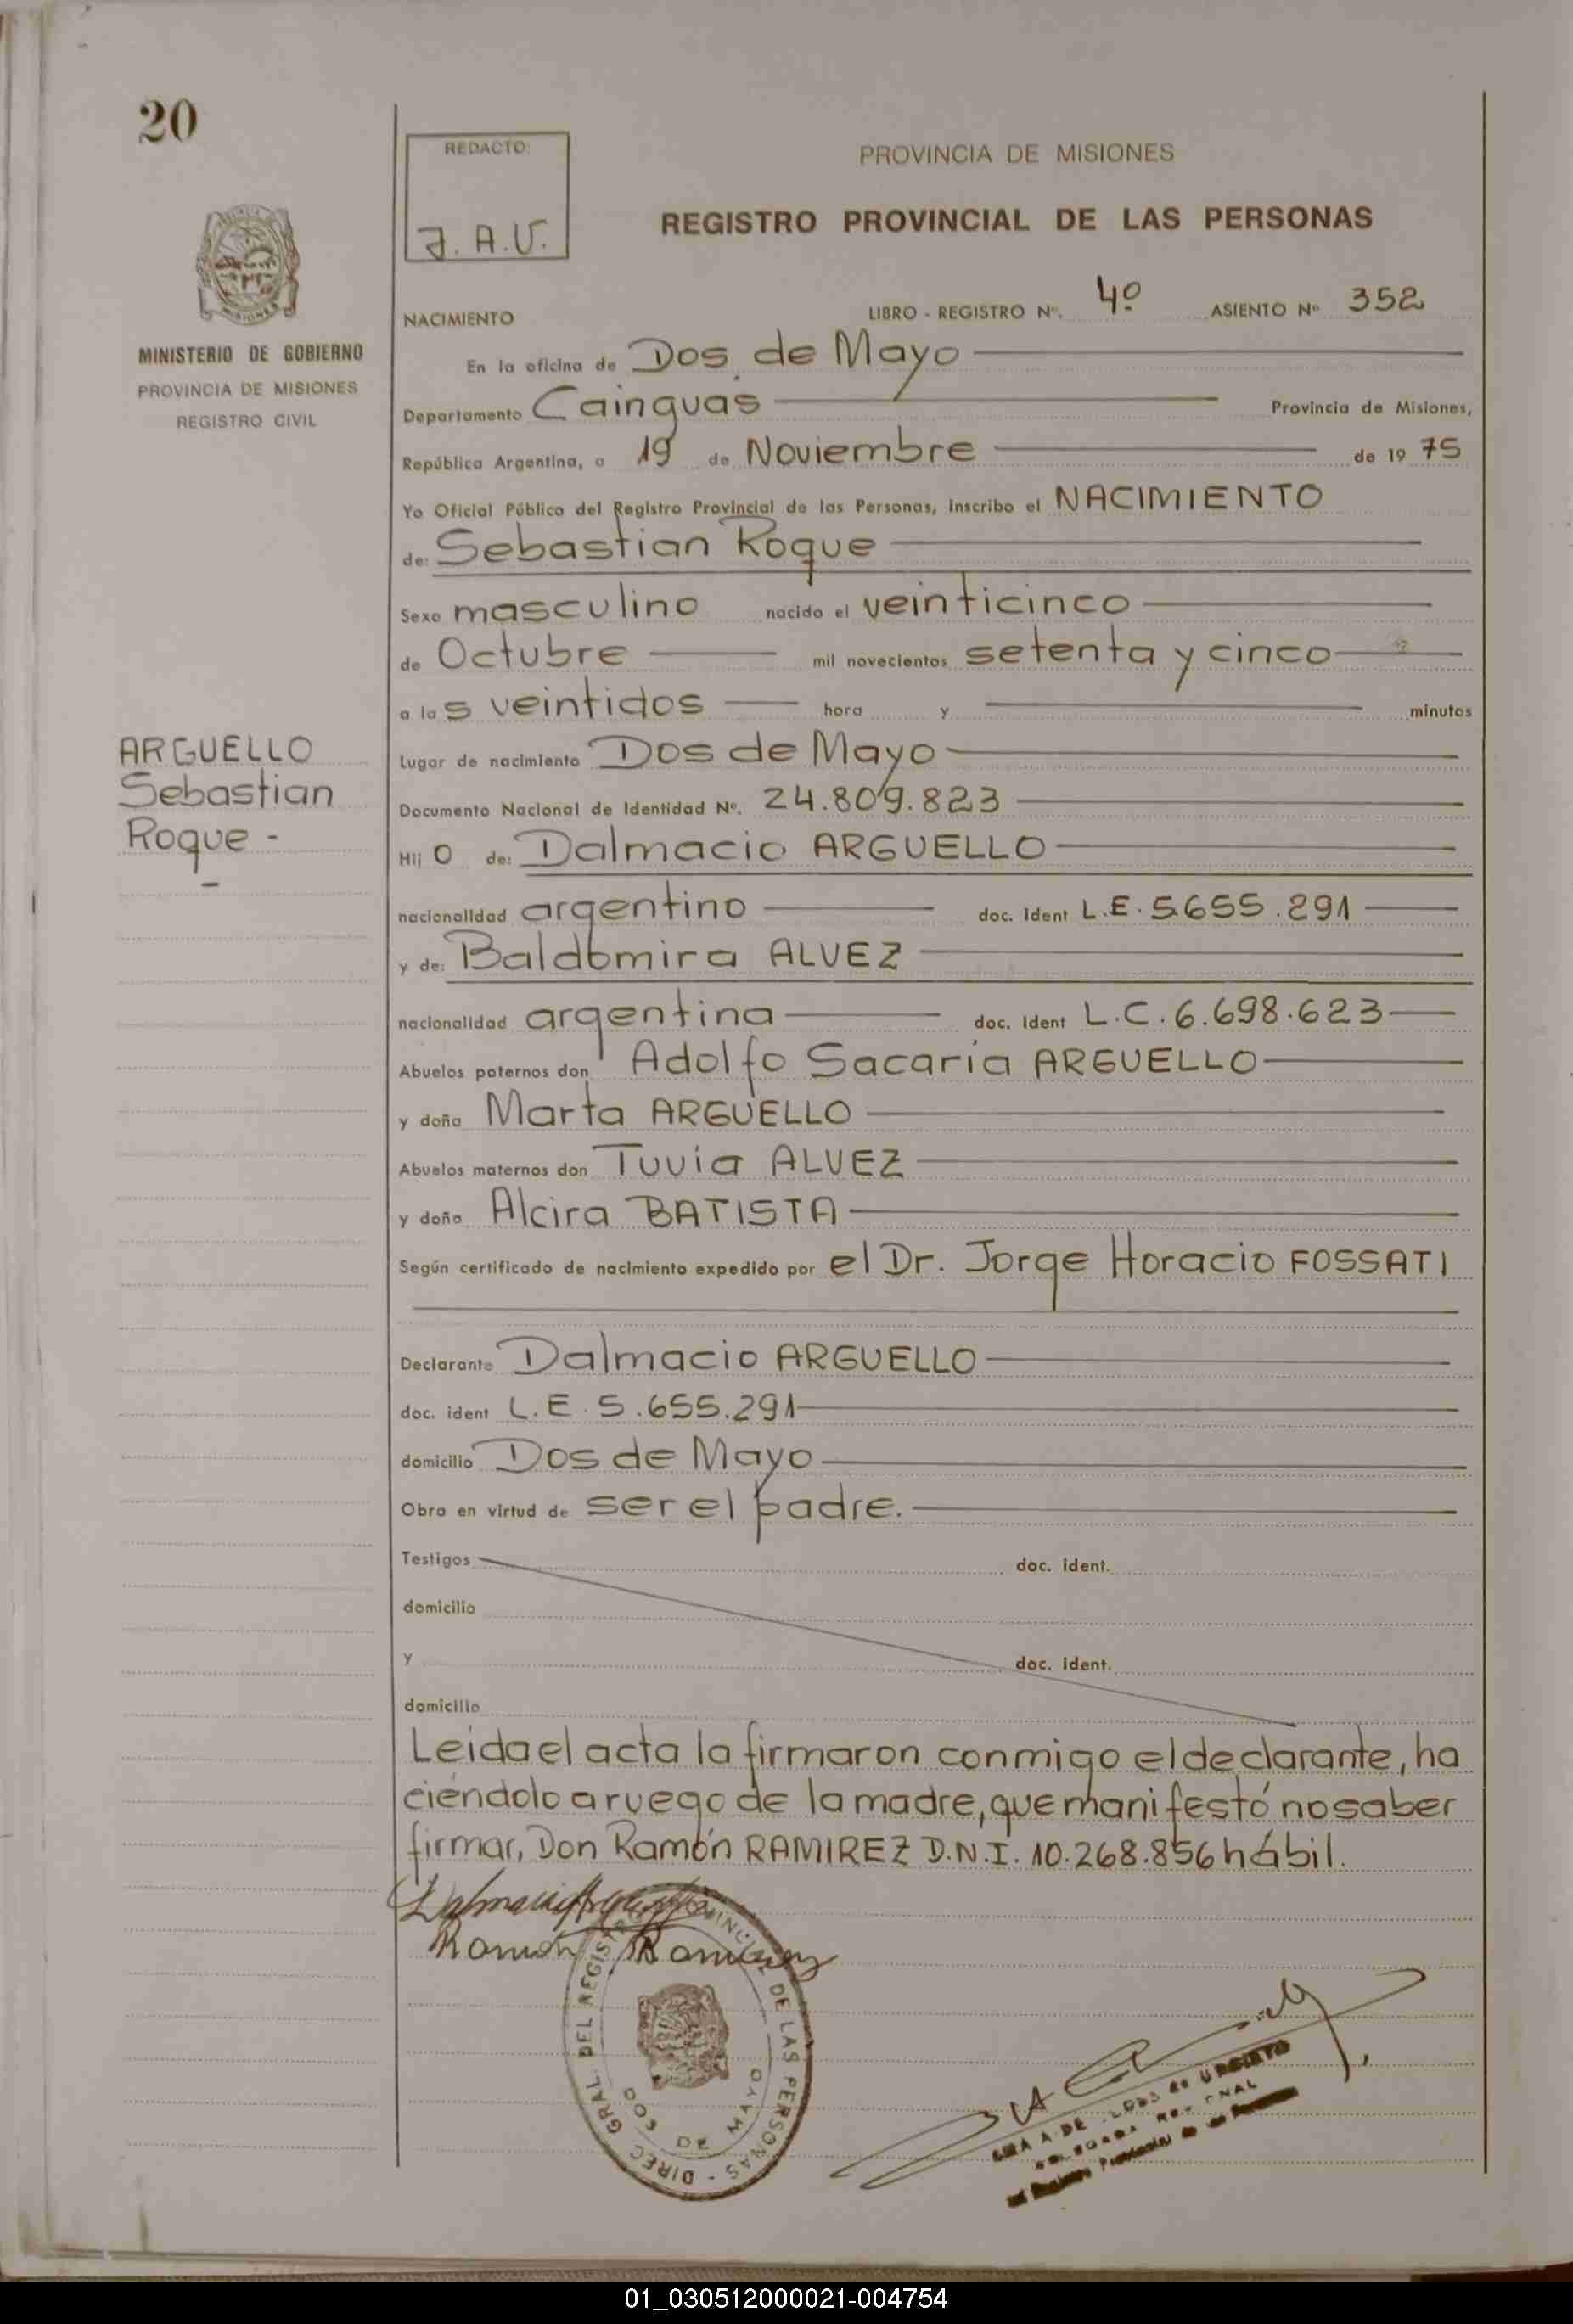 20
REDACTO:
J. A. V.
PROVINCIA DE MISIONES
REGISTRO PROVINCIAL DE LAS PERSONAS
MINISTERIO DE GOBIERNO
PROVINCIA DE MISIONES
REGISTRO CIVIL
NACIMIENTO LIBRO - REGISTRO Nº. 4º ASIENTO Nº 352
En la oficina de Dos de Mayo
Departamento Cainguas Provincia de Misiones,
República Argentina, a 19 de Noviembre de 1975
Yo Oficial Público del Registro Provincial de las Personas, inscribo el NACIMIENTO
de: Sebastian Roque
Sexo masculino nacido el veinticinco
de Octubre mil novecientos setenta y cinco
a las veintidos hora y minutos
ARGUELLO
Sebastian
Roque -
Lugar de nacimiento Dos de Mayo
Documento Nacional de Identidad Nº. 24.809.823
Hijo de: Dalmacio ARGUELLO
nacionalidad argentino doc. Ident L.E. 5655.291
y de: Baldomira ALVEZ
nacionalidad argentina doc. Ident L.C. 6.698.623
Abuelos paternos don Adolfo Sacaria ARGUELLO
y doña Marta ARGUELLO
Abuelos maternos don Tuvia ALVEZ
y doña Alcira BATISTA
Según certificado de nacimiento expedido por el Dr. Jorge Horacio FOSSATI
Declarante Dalmacio ARGUELLO
doc. ident L.E. 5.655.291
domicilio Dos de Mayo
Obra en virtud de ser el padre.
Testigos doc. ident.
domicilio
y doc. ident.
domicilio
Leida el acta la firmaron conmigo el declarante, ha
ciéndolo a ruego de la madre, que manifestó no saber
firmar, Don Ramón RAMIREZ D.N.I. 10.268.856 hábil.
Ramón Ramirez
DIREC GRAL. DEL REGISTRO PROVINCIAL DE LAS PERSONAS -
DOS DE MAYO
01_030512000021-004754